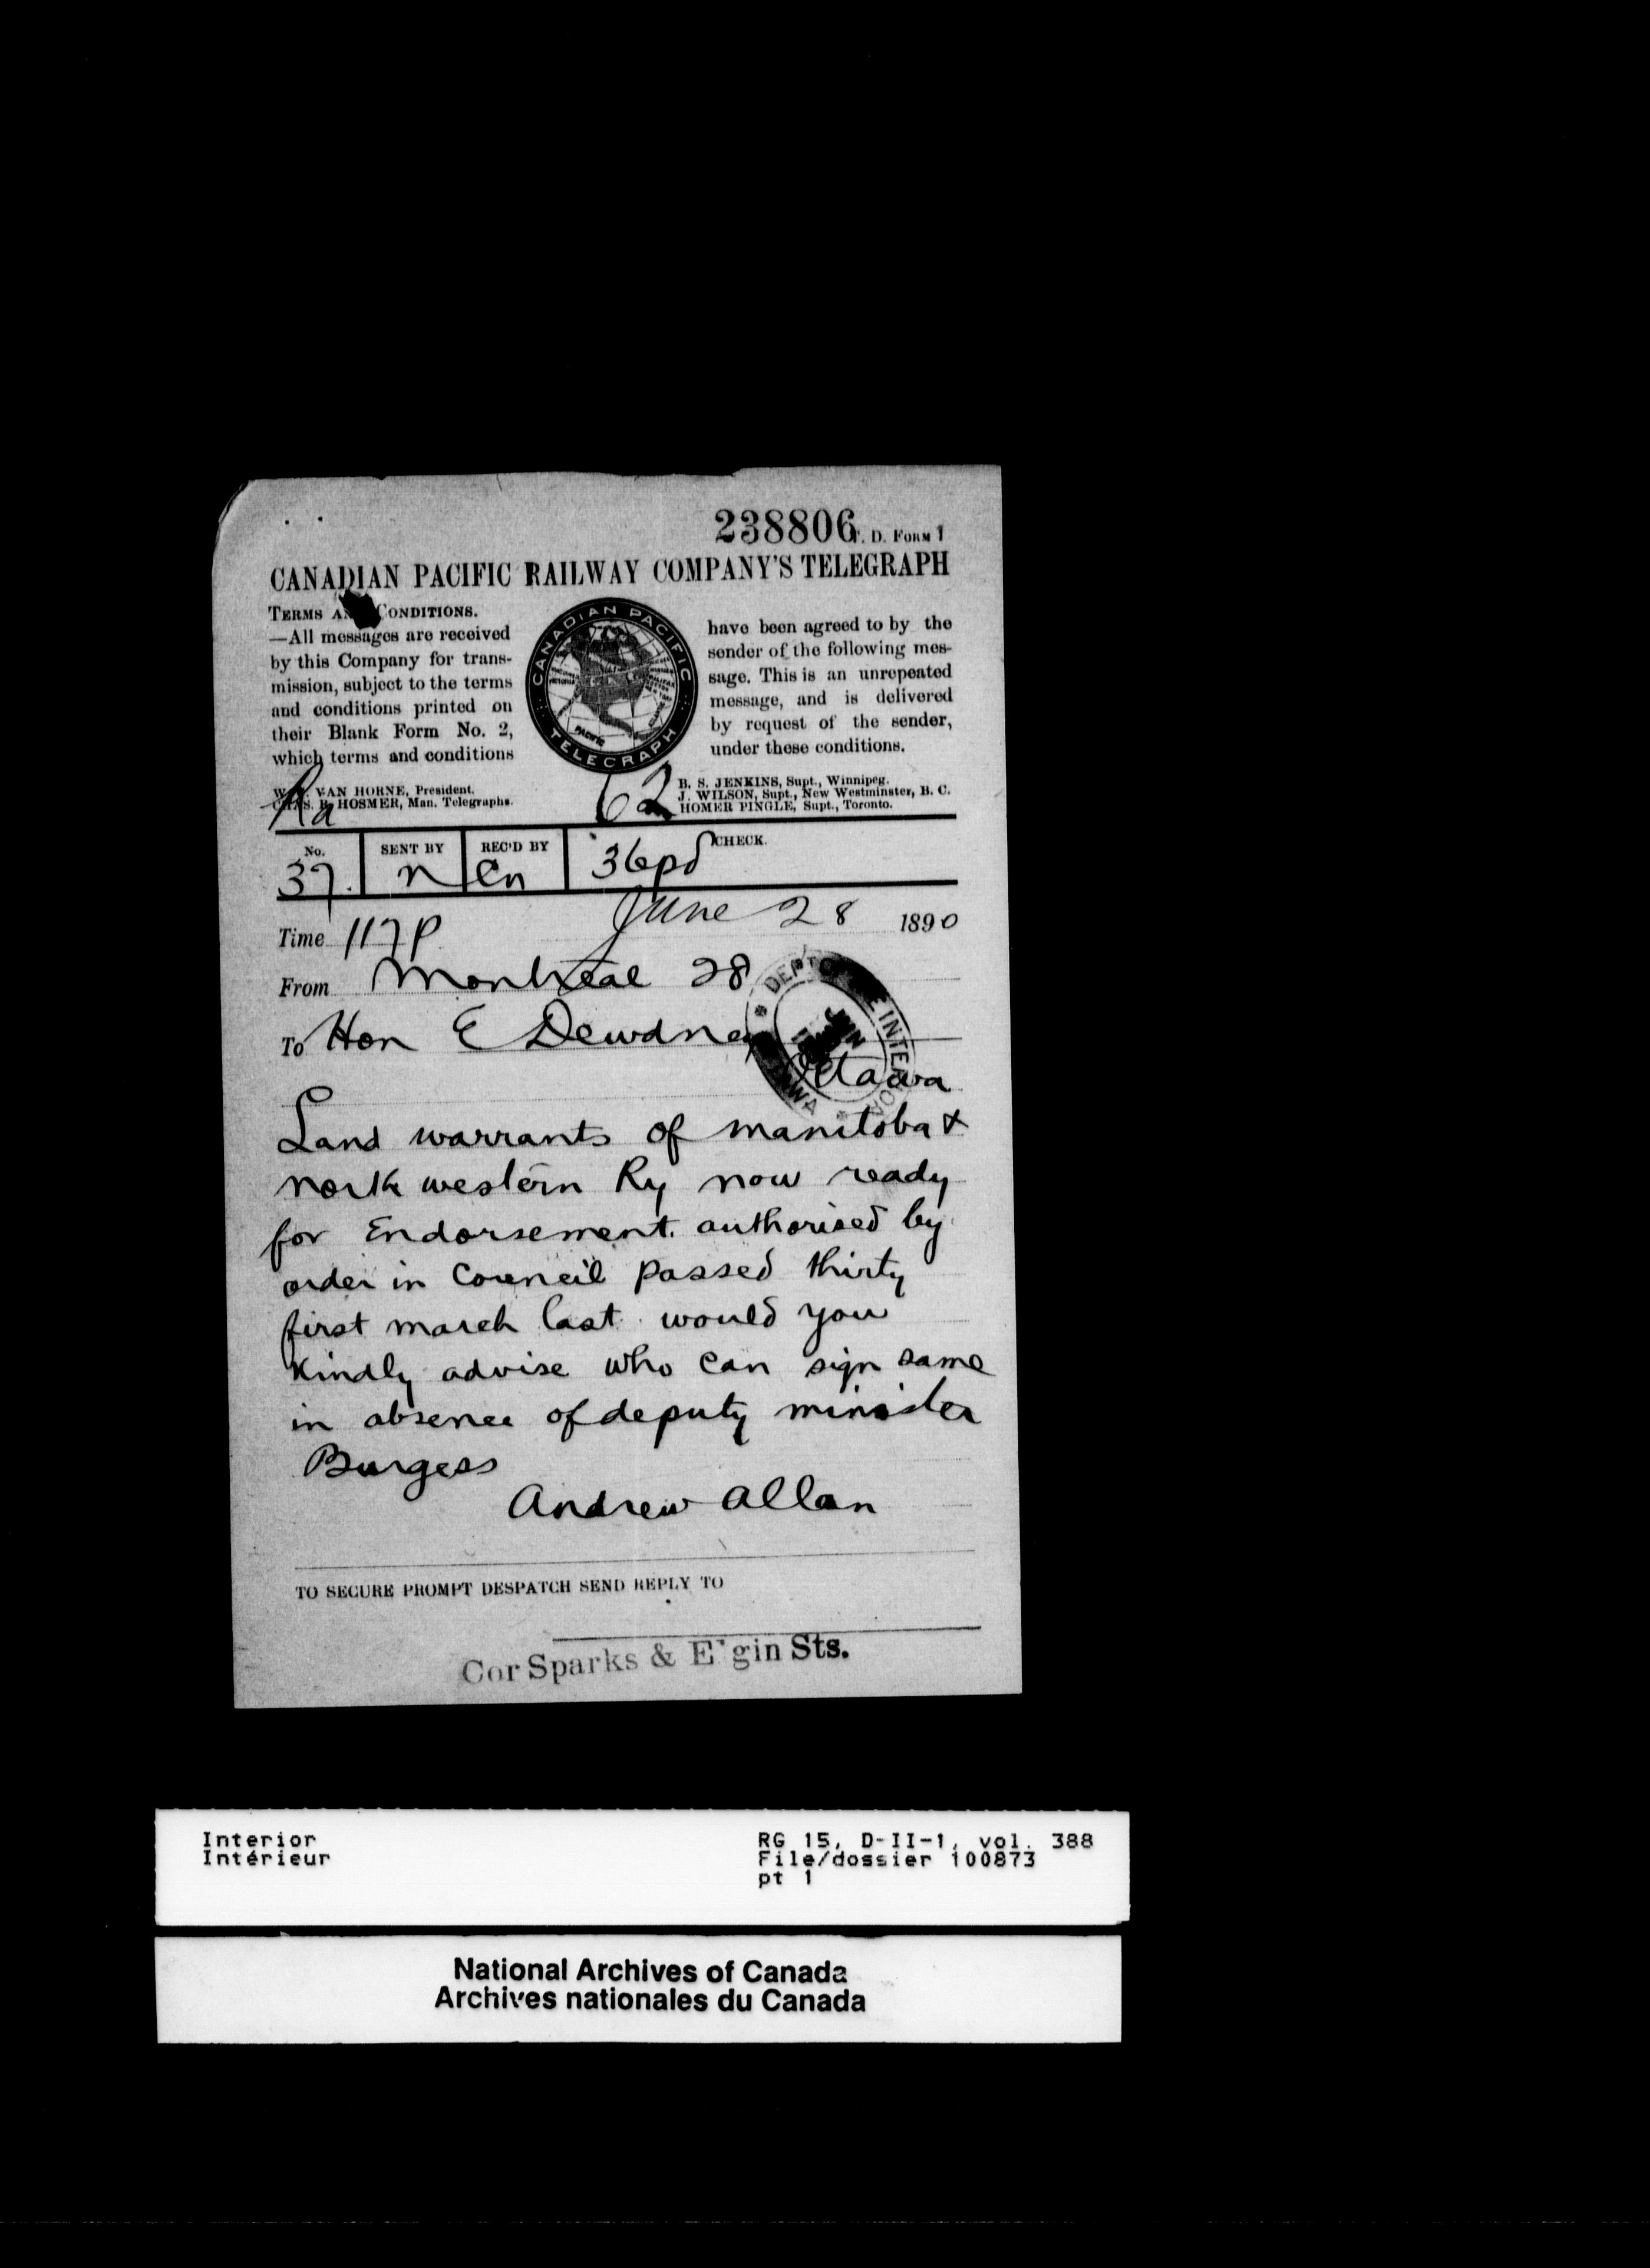 238806
T. D. FORM 1
CANADIAN PACIFIC RAILWAY COMPANY'S TELEGRAPH
TERMS AND CONDITIONS.
—All messages are received
by this Company for trans-
mission, subject to the terms
and conditions printed on
their Blank Form No. 2,
which terms and conditions
CANADIAN PACIFIC
TELEGRAPH
have been agreed to by the
sender of the following mes-
sage. This is an unrepeated
message, and is delivered
by request of the sender,
under these conditions.
VAN HORNE, President.
CHAS. R. HOSMER, Man. Telegraphs.
Ra
62
B. S. JENKINS, Supt., Winnipeg.
J. WILSON, Supt., New Westminster, B. C.
HOMER PINGLE, Supt., Toronto.
No. SENT BY REC'D BY CHECK.
37. n Cn 36pd
June 28 1890
Time 117P
From Montreal 28
To Hon E Dewdney
Ottawa
DEPT OF THE INTERIOR
OTTAWA
JUN
Land warrants of manitoba &
north western Ry now ready
for Endorsement. authorised by
order in Council passed thirty
first march last. would you
kindly advise who can sign same
in absence of deputy minister
Burgess
Andrew Allan
TO SECURE PROMPT DESPATCH SEND REPLY TO
Cor Sparks & Elgin Sts.
Interior
Intérieur
RG 15, D-II-1, vol. 388
File/dossier 100873
pt 1
National Archives of Canada
Archives nationales du Canada